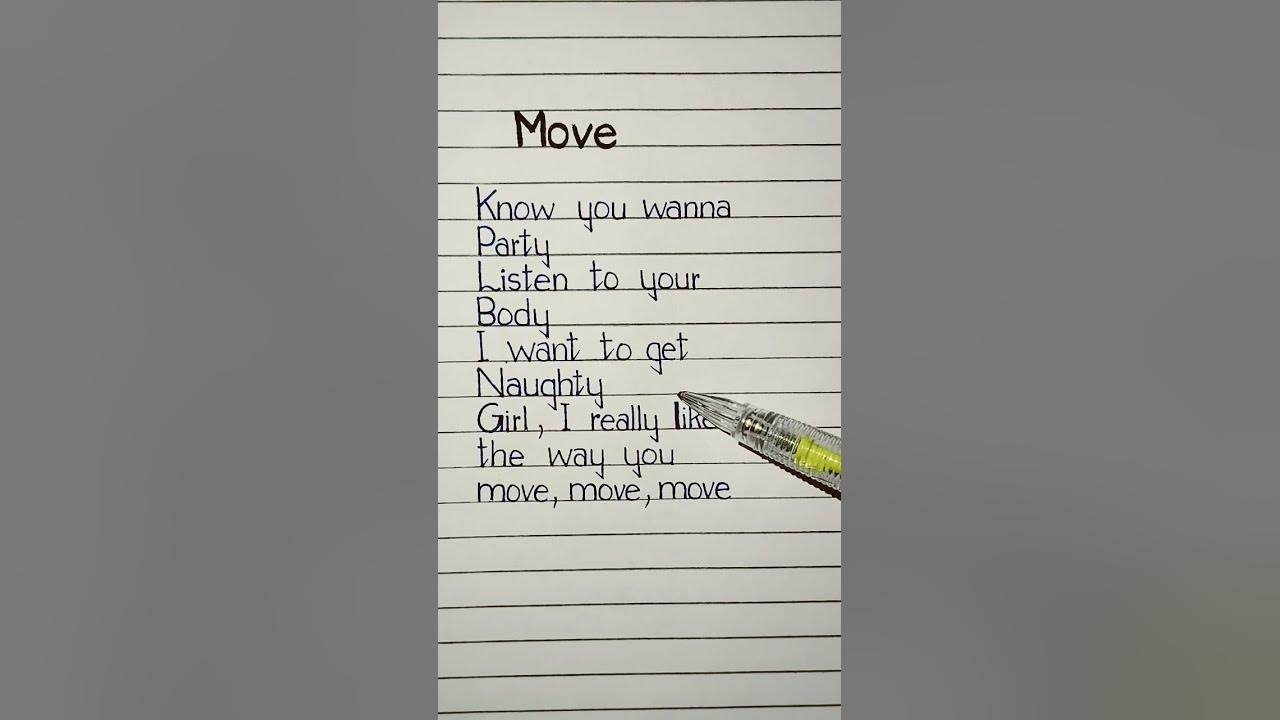 Move
Know you wanna
Party
Listen to your
Body
I want to get
Naughty
Girl, I really like
the way you
move, move, move